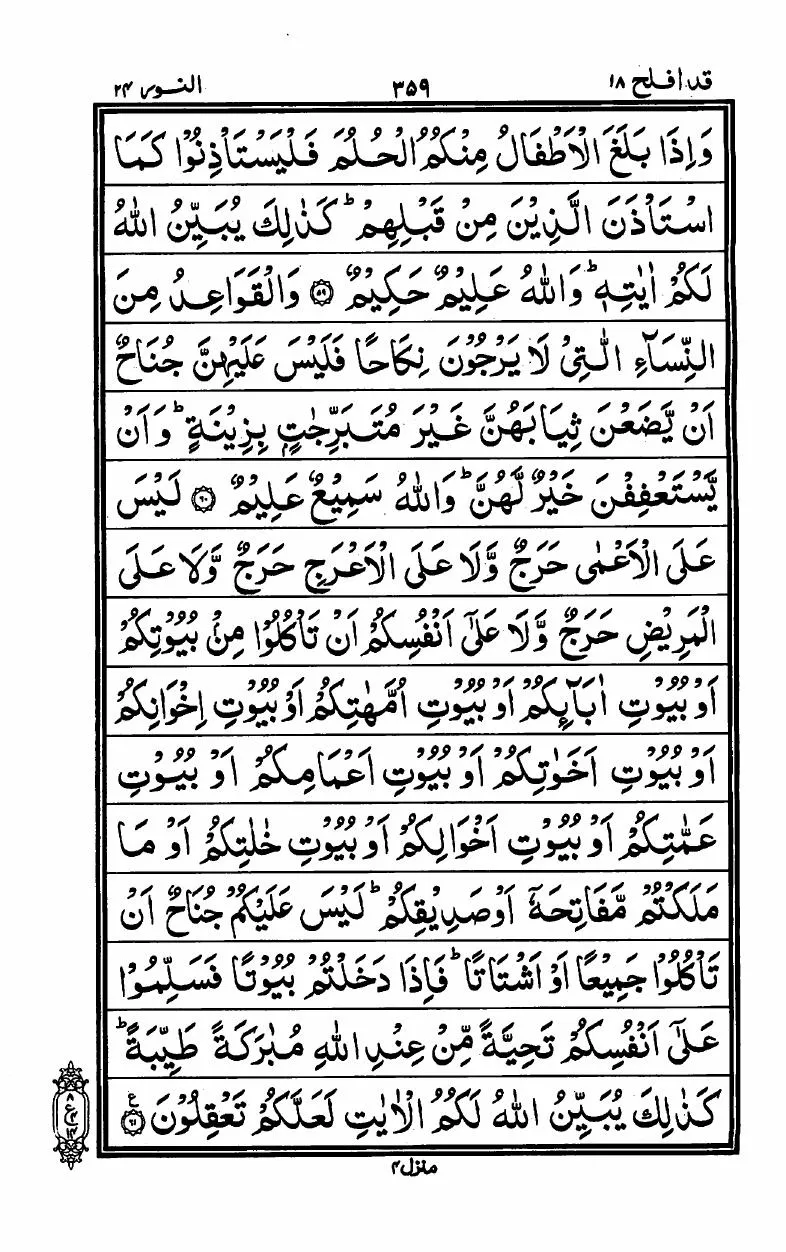 قد افلح ۱۸ ۳۵۹ النور ۲۴
وَاِذَا بَلَغَ الْاَطْفَالُ مِنْكُمُ الْحُلُمَ فَلْيَسْتَاْذِنُوْا كَمَا
اسْتَاْذَنَ الَّذِيْنَ مِنْ قَبْلِهِمْ ؕ كَذٰلِكَ يُبَيِّنُ اللّٰهُ
لَكُمْ اٰيٰتِهٖ ؕ وَاللّٰهُ عَلِيْمٌ حَكِيْمٌ ﴿۵۹﴾ وَالْقَوَاعِدُ مِنَ
النِّسَآءِ الّٰتِيْ لَا يَرْجُوْنَ نِكَاحًا فَلَيْسَ عَلَيْهِنَّ جُنَاحٌ
اَنْ يَّضَعْنَ ثِيَابَهُنَّ غَيْرَ مُتَبَرِّجٰتٍۭ بِزِيْنَةٍ ؕ وَاَنْ
يَّسْتَعْفِفْنَ خَيْرٌ لَّهُنَّ ؕ وَاللّٰهُ سَمِيْعٌ عَلِيْمٌ ﴿۶۰﴾ لَيْسَ
عَلَى الْاَعْمٰى حَرَجٌ وَّلَا عَلَى الْاَعْرَجِ حَرَجٌ وَّلَا عَلَى
الْمَرِيْضِ حَرَجٌ وَّلَا عَلٰٓى اَنْفُسِكُمْ اَنْ تَاْكُلُوْا مِنْۢ بُيُوْتِكُمْ
اَوْ بُيُوْتِ اٰبَآئِكُمْ اَوْ بُيُوْتِ اُمَّهٰتِكُمْ اَوْ بُيُوْتِ اِخْوَانِكُمْ
اَوْ بُيُوْتِ اَخَوٰتِكُمْ اَوْ بُيُوْتِ اَعْمَامِكُمْ اَوْ بُيُوْتِ
عَمّٰتِكُمْ اَوْ بُيُوْتِ اَخْوَالِكُمْ اَوْ بُيُوْتِ خٰلٰتِكُمْ اَوْ مَا
مَلَكْتُمْ مَّفَاتِحَهٗۤ اَوْ صَدِيْقِكُمْ ؕ لَيْسَ عَلَيْكُمْ جُنَاحٌ اَنْ
تَاْكُلُوْا جَمِيْعًا اَوْ اَشْتَاتًا ؕ فَاِذَا دَخَلْتُمْ بُيُوْتًا فَسَلِّمُوْا
عَلٰٓى اَنْفُسِكُمْ تَحِيَّةً مِّنْ عِنْدِ اللّٰهِ مُبٰرَكَةً طَيِّبَةً ؕ
كَذٰلِكَ يُبَيِّنُ اللّٰهُ لَكُمُ الْاٰيٰتِ لَعَلَّكُمْ تَعْقِلُوْنَ ﴿۶۱﴾ ع
۸ ع۴ ۱۴
منزل ۴